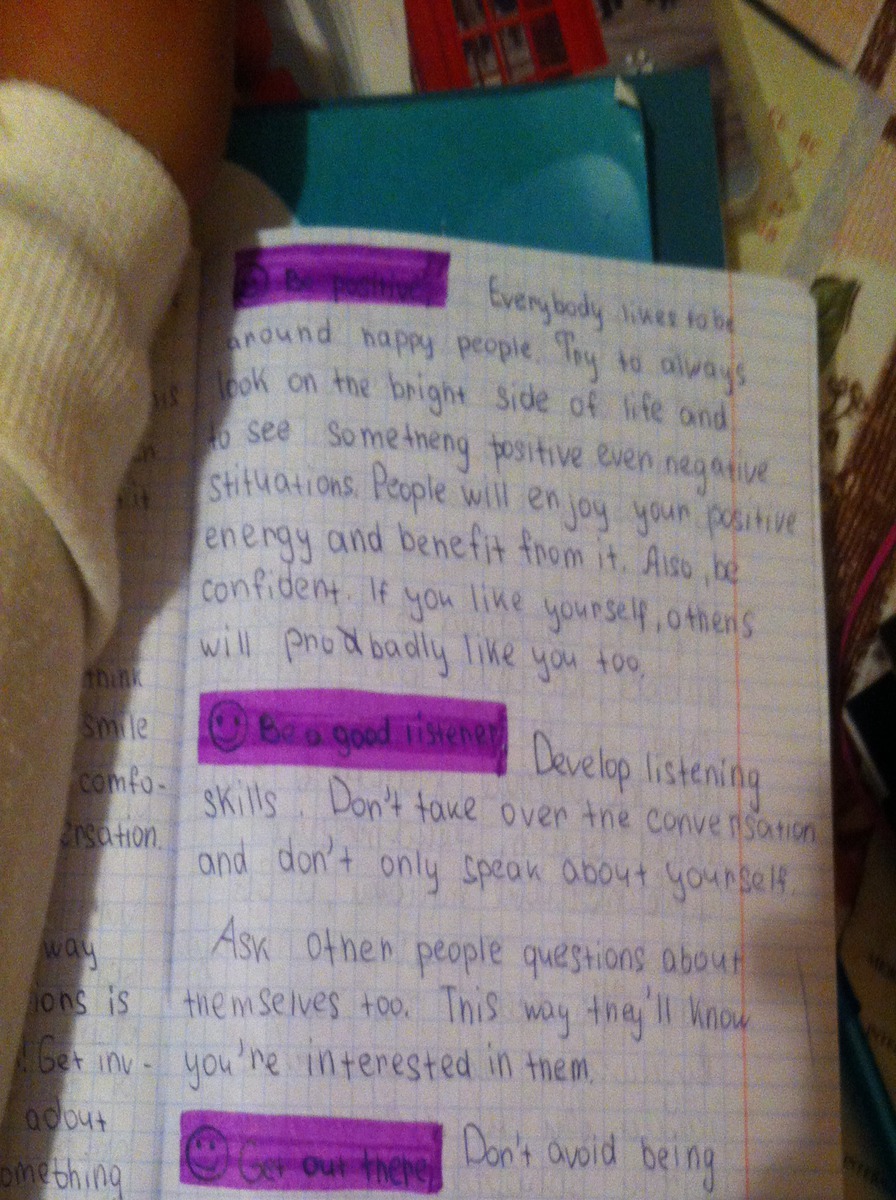 Be positive. Everybody likes to be
around happy people. Try to always
look on the bright side of life and
to see sometheng positive even negative
stituations. People will enjoy your positive
energy and benefit from it. Also, be
confident. If you like yourself, others
will prodbadly like you too.
Be a good listener Develop listening
skills. Don't take over the conversation
and don't only speak about yourself.
Ask other people questions about
themselves too. This way they'll know
you're interested in them.
Get out there Don't avoid being
think
smile
comfo-
ersation.
way
ions is
Get inv-
adout
omething